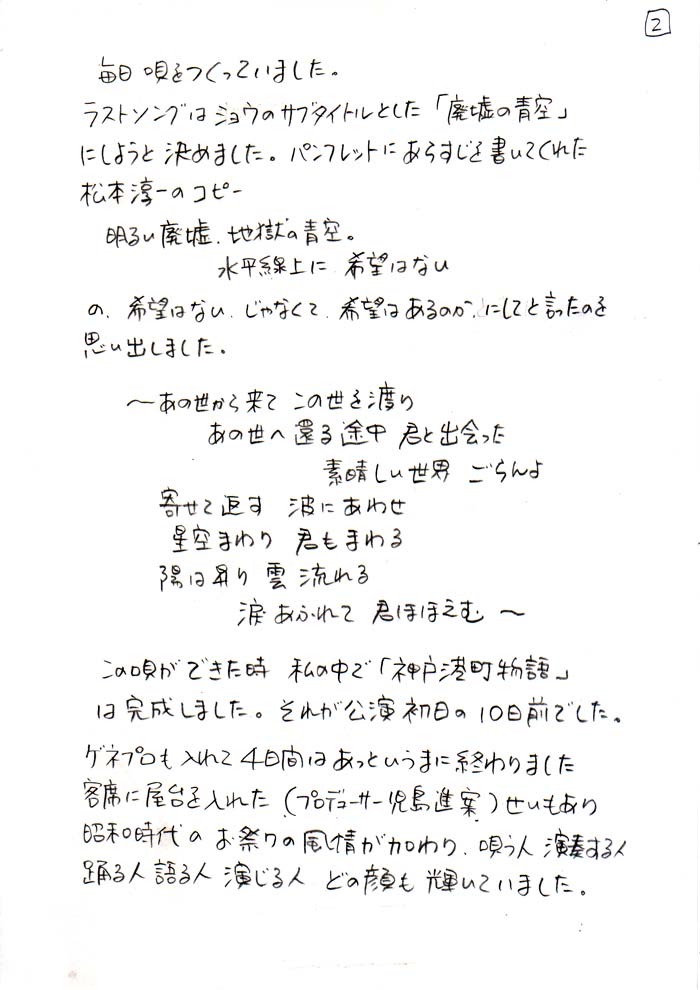 2
毎日 唄をつくっていました。
ラストソングは ジョウのサブタイトルとした「廃墟の青空」
にしようと 決めました。パンフレットに あらすじを 書いてくれた
松本淳一の コピー
明るい廃墟、地獄の青空。
水平線上に 希望はない
の、希望はない、じゃなくて、希望は あるのか、にしてと言ったのを
思い出しました。
〜あの世から来て この世を渡り
あの世へ 還る 途中 君と出会った
素晴しい世界 ごらんよ
寄せて返す 波にあわせ
星空まわり 君もまわる
陽は昇り 雲 流れる
涙 あふれて 君ほほえむ 〜
この唄ができた時 私の中で「神戸港町物語」
は完成しました。それが公演初日の10日前でした。
ゲネプロも入れて 4日間は あっというまに終わりました
客席に屋台を入れた (プロデューサー児島進案) せいもあり
昭和時代の お祭りの風情が加わり、唄う人 演奏する人
踊る人 語る人 演じる人 どの顔も 輝いていました。